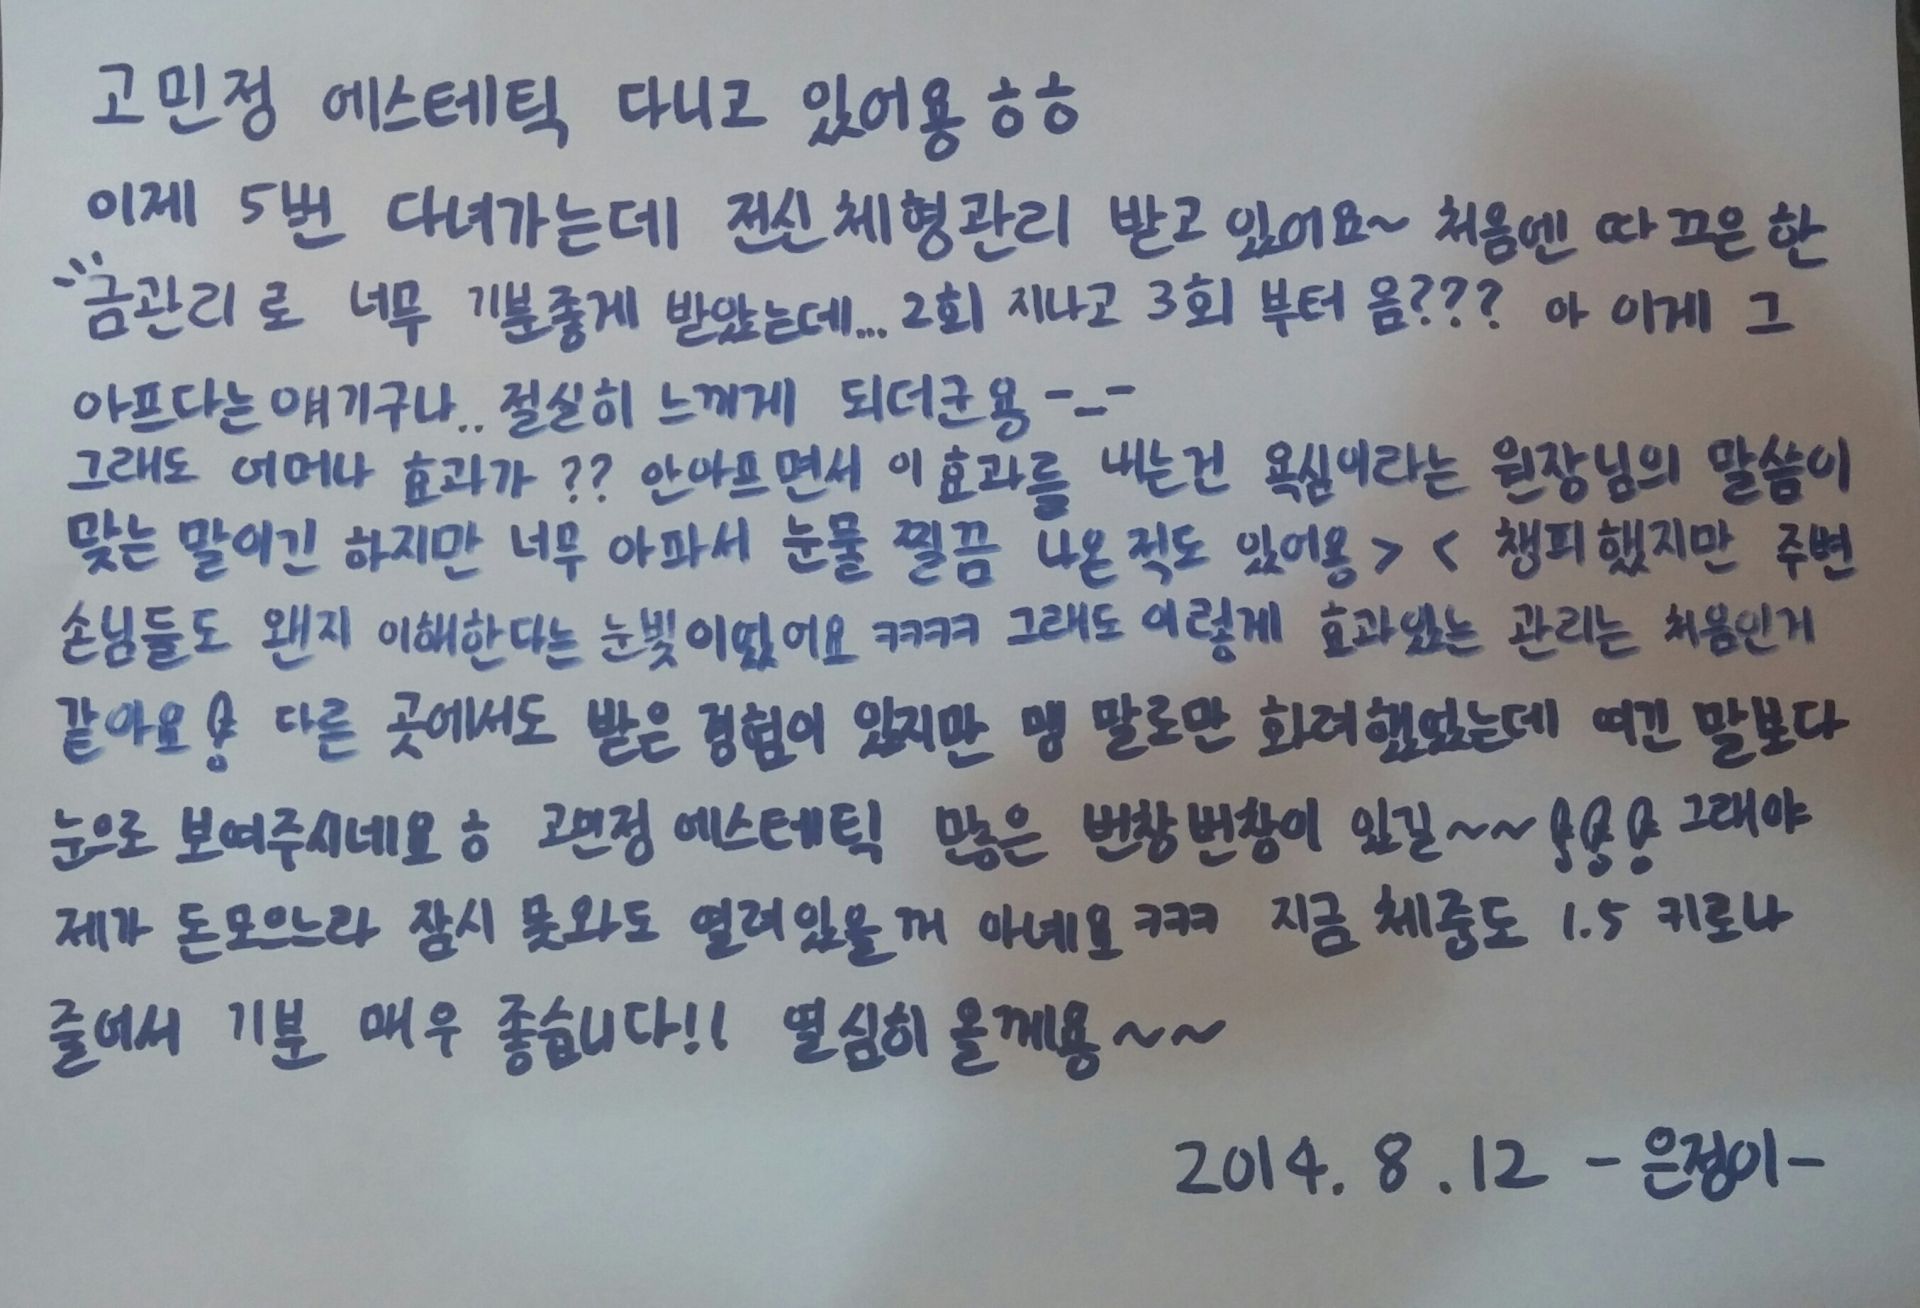 고민정 에스테틱 다니고 있어용 ㅎㅎ
이제 5번 다녀가는데 전신체형관리 받고 있어요~ 처음엔 따끄은한
금관리로 너무 기분좋게 받았는데... 2회 지나고 3회 부터 음??? 아 이게 그
아프다는 얘기구나.. 절실히 느끼게 되더군용 -_-
그래도 어머나 효과가?? 안아프면서 이 효과를 내는건 욕심이라는 원장님의 말씀이
맞는 말이긴 하지만 너무 아파서 눈물 찔끔 나온적도 있어용 > < 챙피했지만 주변
손님들도 왠지 이해한다는 눈빛이었어요 ㅋㅋㅋㅋ 그래도 이렇게 효과있는 관리는 처음인거
같아요! 다른 곳에서도 받은 경험이 있지만 맹 말로만 화려했었는데 여긴 말보다
눈으로 보여주시네요 ㅎ 고민정 에스테틱 많은 번창번창이 있길~~!!! 그래야
제가 돈모으느라 잠시 못와도 열려있을꺼 아녜요 ㅋㅋㅋ 지금 체중도 1.5 키로나
줄어서 기분 매우 좋습니다!! 열심히 올께용~~
2014. 8. 12 -은정이-